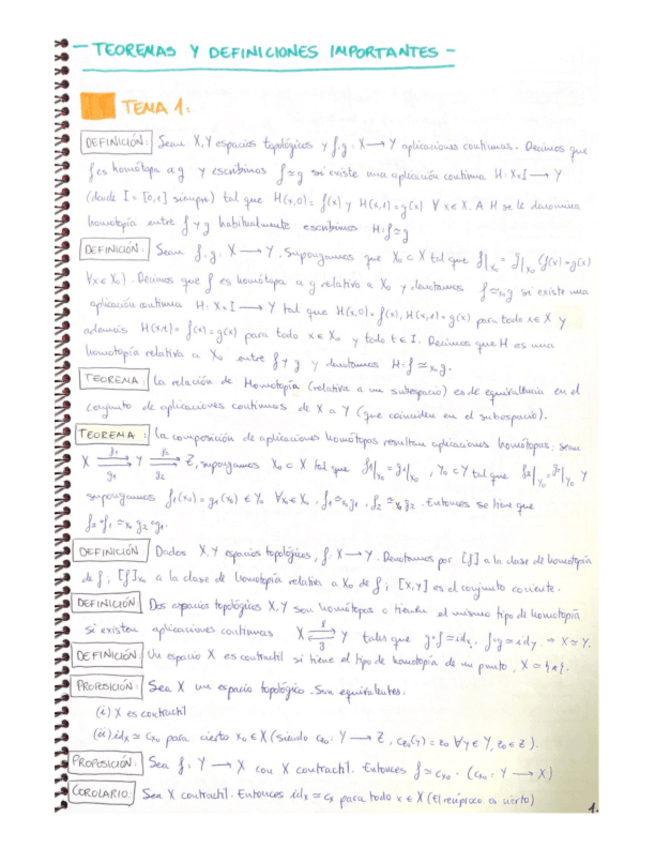 - TEOREMAS Y DEFINICIONES IMPORTANTES -
TEMA 1:
DEFINICIÓN: Sean X,Y espacios topológicos y f,g: X → Y aplicaciones continuas. Decimos que
f es homótopa a g y escribimos f ≃ g si existe una aplicación continua H: X×I → Y
(donde I = [0,1] siempre) tal que H(x,0) = f(x) y H(x,1) = g(x) ∀x ∈ X. A H se le denomina
homotopía entre f y g habitualmente escribimos H: f ≃ g
DEFINICIÓN: Sean f,g: X → Y. Supongamos que X₀ ⊂ X tal que f|X₀ = g|X₀ (f(x) = g(x)
∀x ∈ X₀). Decimos que f es homótopa a g relativo a X₀ y denotamos f ≃X₀ g si existe una
aplicación continua H: X×I → Y tal que H(x,0) = f(x), H(x,1) = g(x) para todo x ∈ X y
además H(x,t) = f(x) = g(x) para todo x ∈ X₀ y todo t ∈ I. Decimos que H es una
homotopía relativa a X₀ entre f y g y denotamos H: f ≃X₀ g.
TEOREMA: La relación de Homotopía (relativa a un subespacio) es de equivalencia en el
conjunto de aplicaciones continuas de X a Y (que coinciden en el subespacio).
TEOREMA: La composición de aplicaciones homótopas resultan aplicaciones homótopas: sean
X ⇉ Y ⇉ Z, supongamos X₀ ⊂ X tal que f₁|X₀ = g₁|X₀, Y₀ ⊂ Y tal que f₂|Y₀ = g₂|Y₀ y
f₁ f₂ g₁ g₂
supongamos f₁(x₀) = g₁(x₀) ∈ Y₀ ∀x₀ ∈ X₀. f₁ ≃X₀ g₁, f₂ ≃Y₀ g₂. Entonces se tiene que
f₂∘f₁ ≃X₀ g₂∘g₁.
DEFINICIÓN: Dados X,Y espacios topológicos, f: X → Y. Denotamos por [f] a la clase de homotopía
de f; [f]X₀ a la clase de homotopía relativa a X₀ de f; [X,Y] es el conjunto cociente.
DEFINICIÓN Dos espacios topológicos X,Y son homótopos o tienen el mismo tipo de homotopía
si existen aplicaciones continuas X ⇄ Y tales que g∘f ≃ idx, f∘g ≃ idy. → X ≃ Y.
f g
DEFINICIÓN Un espacio X es contráctil si tiene el tipo de homotopía de un punto, X ≃ {*}.
PROPOSICIÓN: Sea X un espacio topológico. Son equivalentes:
(i) X es contráctil
(ii) idx ≃ cx₀ para cierto x₀ ∈ X (siendo cz₀: Y → Z, cz₀(y) = z₀ ∀y ∈ Y, z₀ ∈ Z).
PROPOSICIÓN: Sea f: Y → X con X contráctil. Entonces f ≃ cx₀. (cx₀: Y → X)
COROLARIO: Sea X contráctil. Entonces idx ≃ cx para todo x ∈ X (El recíproco es cierto)
1.